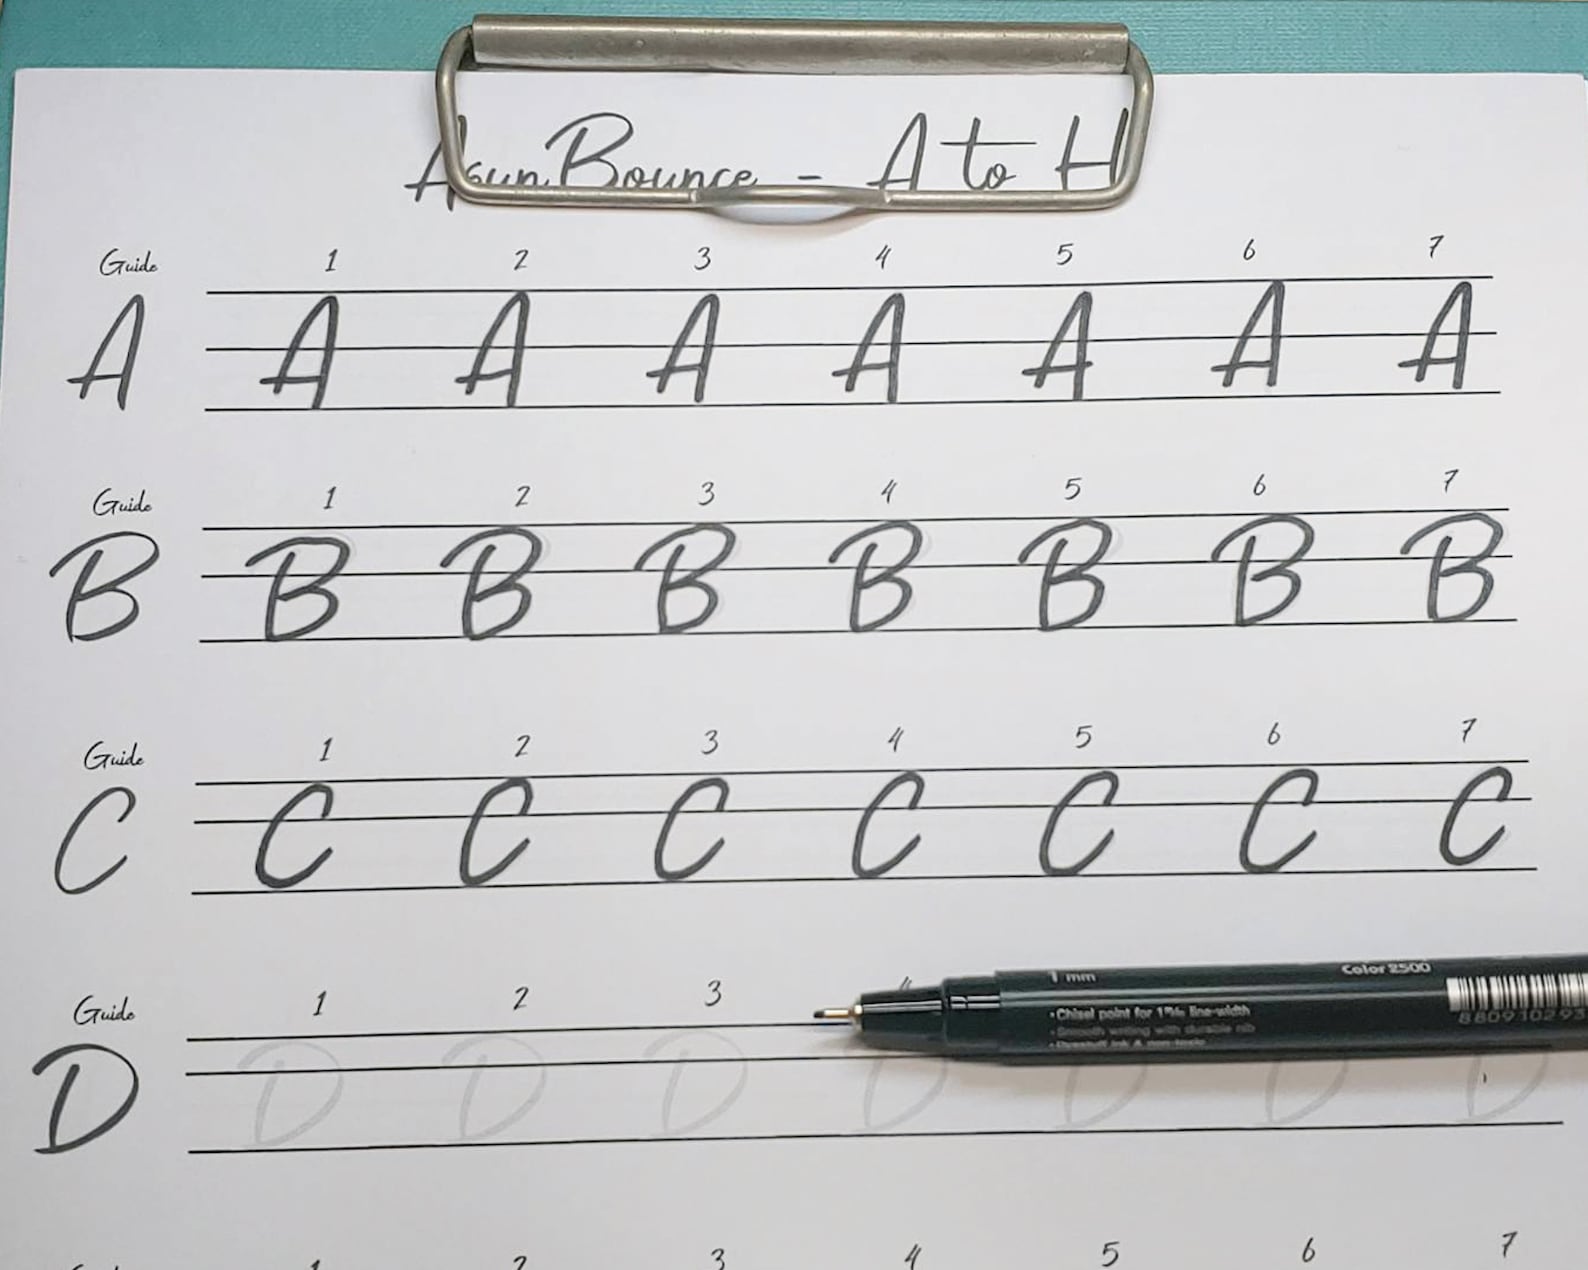 Asun Bounce - A to H
Guide 1 2 3 4 5 6 7
A A A A A A A A
Guide 1 2 3 4 5 6 7
B B B B B B B B
Guide 1 2 3 4 5 6 7
C C C C C C C C
Guide 1 2 3 4
D D D D D D D D
1 mm Color 2500
• Chisel point for line-width
• Smooth writing with durable nib
8809102935
Guide 1 2 3 4 5 6 7